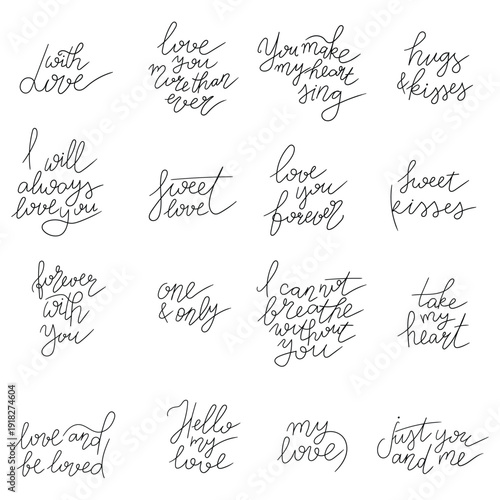 with
Love
love
you
more than
ever
You make
my heart
sing
hugs
& kisses
I will
always
love you
Sweet
love
love
you
forever
Sweet
kisses
forever
with
you
one
& only
I cannot
breathe
without
you
take
my
heart
love and
be loved
Hello
my
love
my
love
just you
and me
Adobe Stock | #1918274604